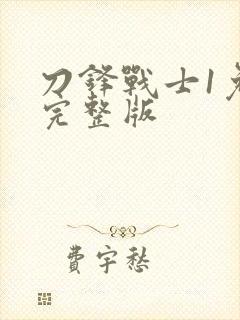 刀鋒戰士1免
完整版
費宇愁